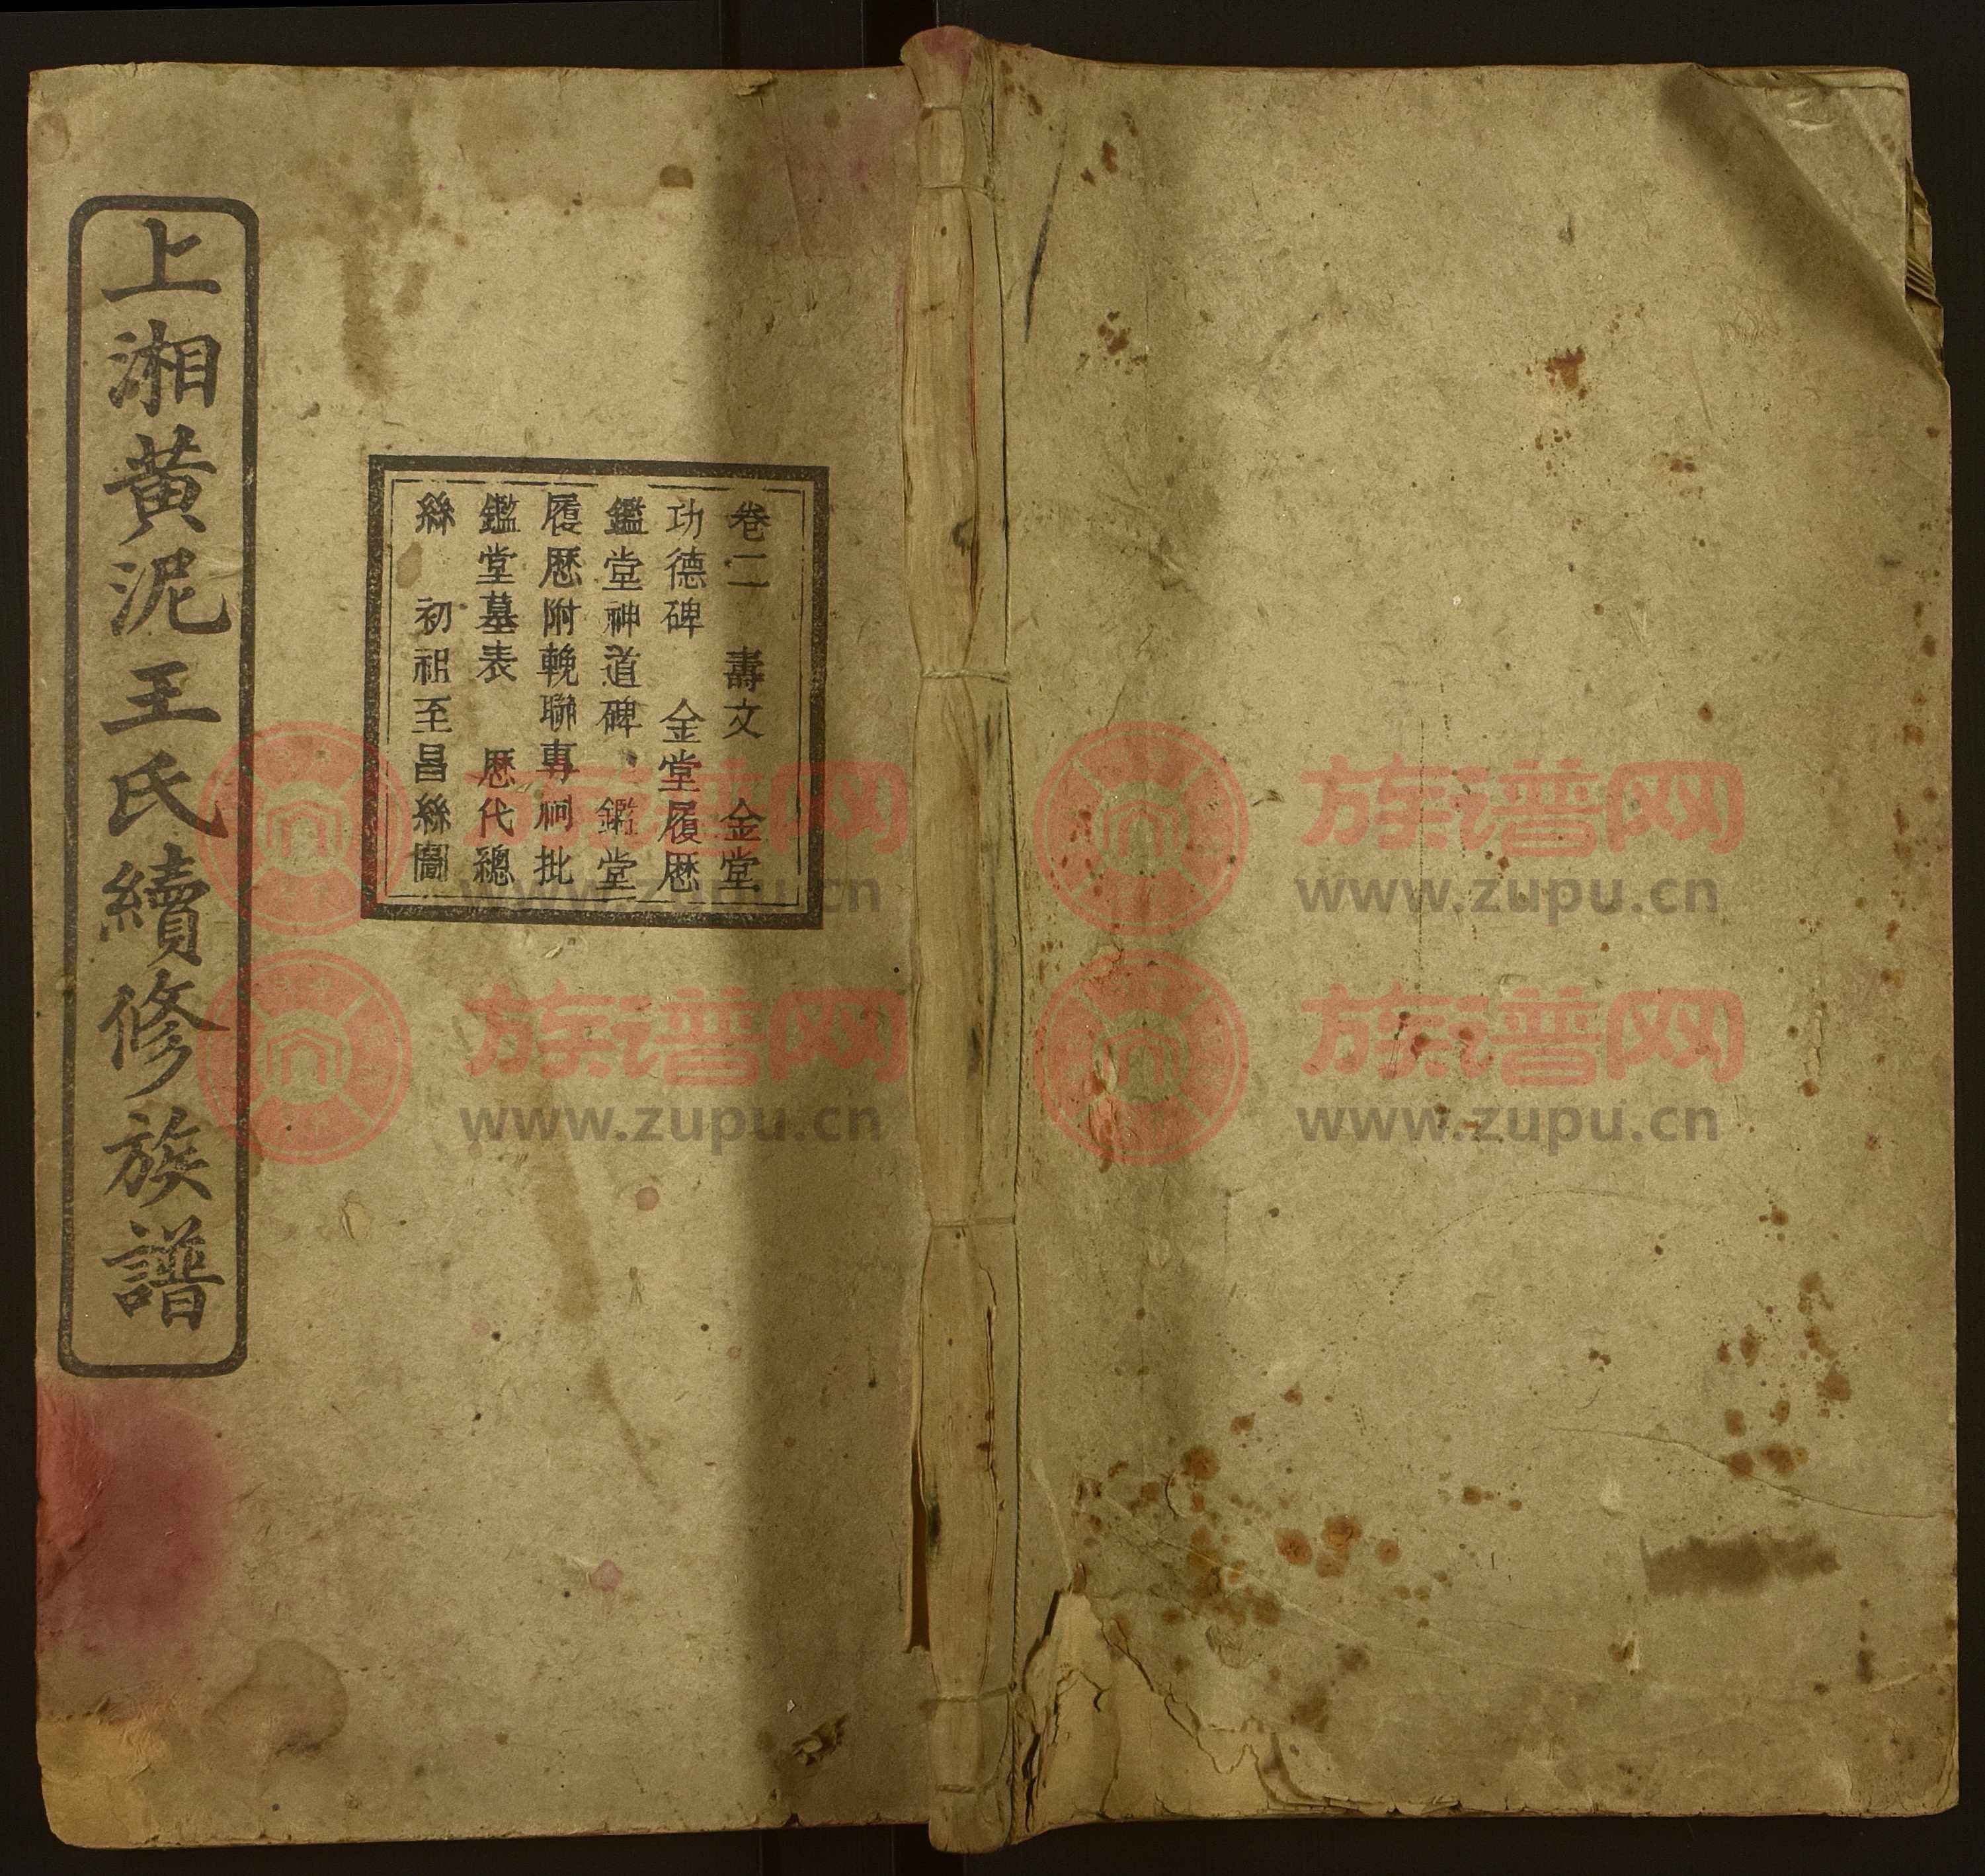 上湘黄泥王氏續修族譜
卷二　壽文　金堂
功德碑　金堂履歴
鑑堂神道碑　鑑堂
履歴附輓聯專祠批
鑑堂墓表　歴代總
絲　初祖至昌絲圖
族谱网
www.zupu.cn
族谱网
www.zupu.cn
族谱网
www.zupu.cn
族谱网
www.zupu.cn